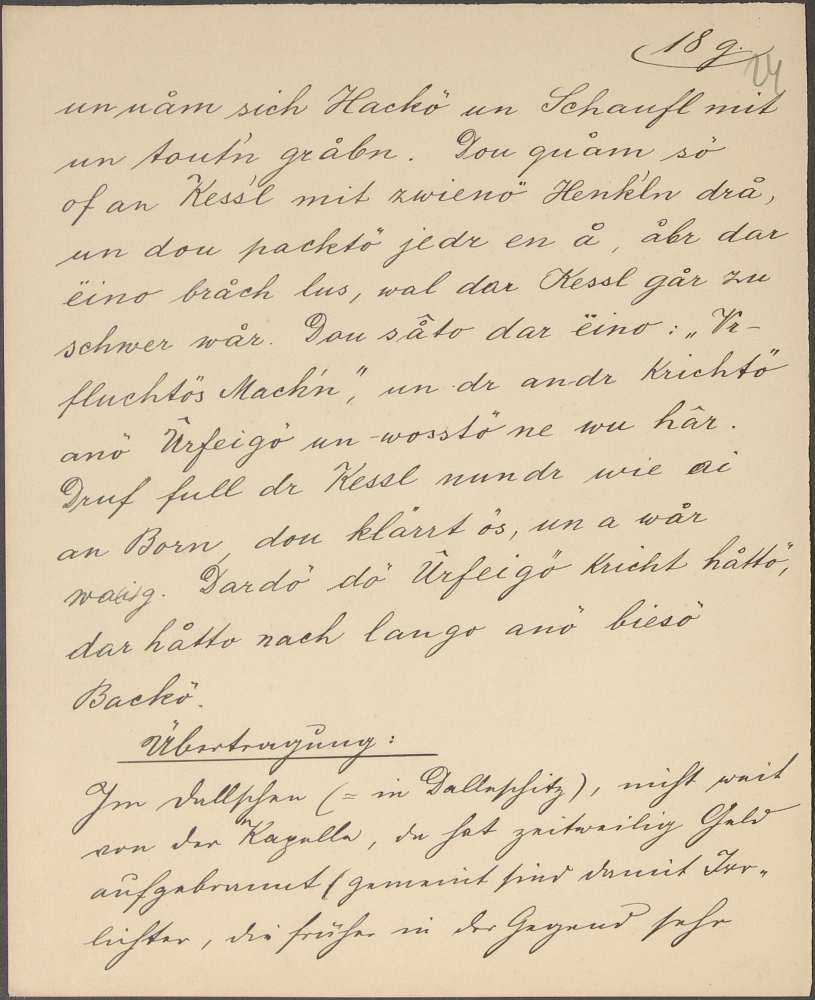 18 g.
24
un nåm sich Hackö un Schaufl mit
un tout'n gråbn. Dou quåm sö
of an Kess'l mit zwienö Henk'ln drå,
un dou packtö jedr en å, åbr dar
ëino bråch lus, wal dar Kessl går zu
schwer wår. Dou såto dar ëino: „Vr-
fluchtös Mach'n", un dr andr krichtö
anö Ûrfeigö un wosstö ne wu hâr.
Druf full dr Kessl nundr wie ai
an Born, dou klårrt ös, un a wår
waig. Dardö dö Ûrfeigö kricht håttö,
dar håtto nach lango anö biesö
Backö.
Übertragung:
Im Dallschen (= in Dalleschitz), nicht weit
von der Kapelle, da hat zeitweilig Geld
aufgebrannt (gemeint sind damit Irr-
lichter, die früher in der Gegend sehr